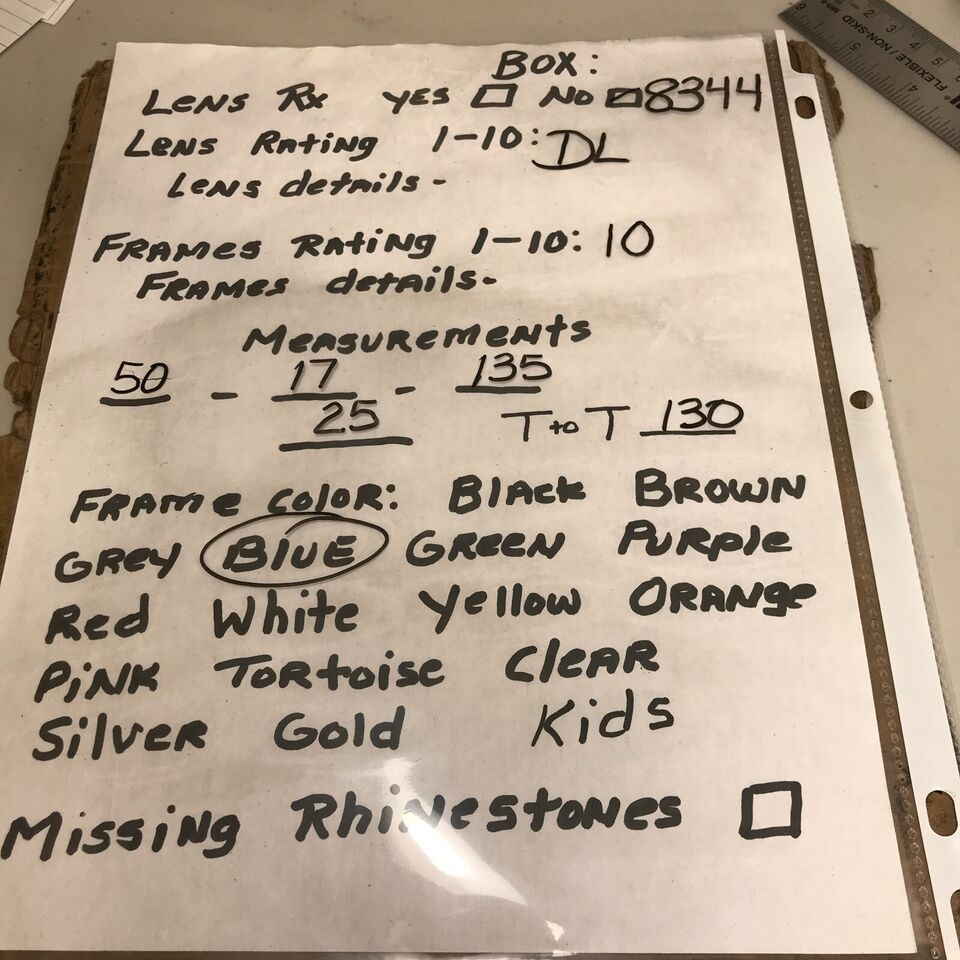 BOX:
Lens Rx YES NO 8344
Lens Rating 1-10: DL
Lens details -
Frames Rating 1-10: 10
Frames details-
Measurements
50 - 17 - 135
25 T to T 130
Frame color: Black Brown
Grey Blue Green Purple
Red White Yellow Orange
Pink Tortoise Clear
Silver Gold Kids
Missing Rhinestones
FLEXIBLE / NON-SKID